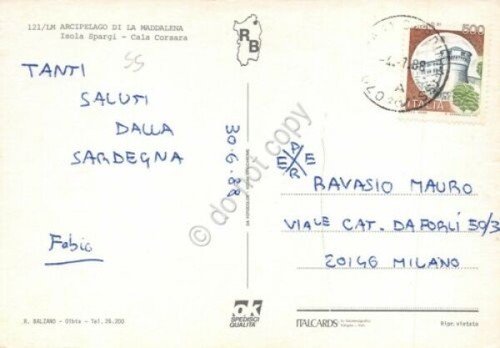 121/LM ARCIPELAGO DI LA MADDALENA
Isola Spargi - Cala Corsara
R B
500
ITALIA
-4.-7.88
55
TANTI
SALUTI
DALLA
SARDEGNA
Fabio
30.6.88
do not copy
E E
RAVASIO MAURO
VIALE CAT. DA FORLÌ 50/3
20146 MILANO
R. BALZANO - Olbia - Tel. 26.200
ok
SPEDISCI
QUALITÀ
ITALCARDS
Ripr. vietata